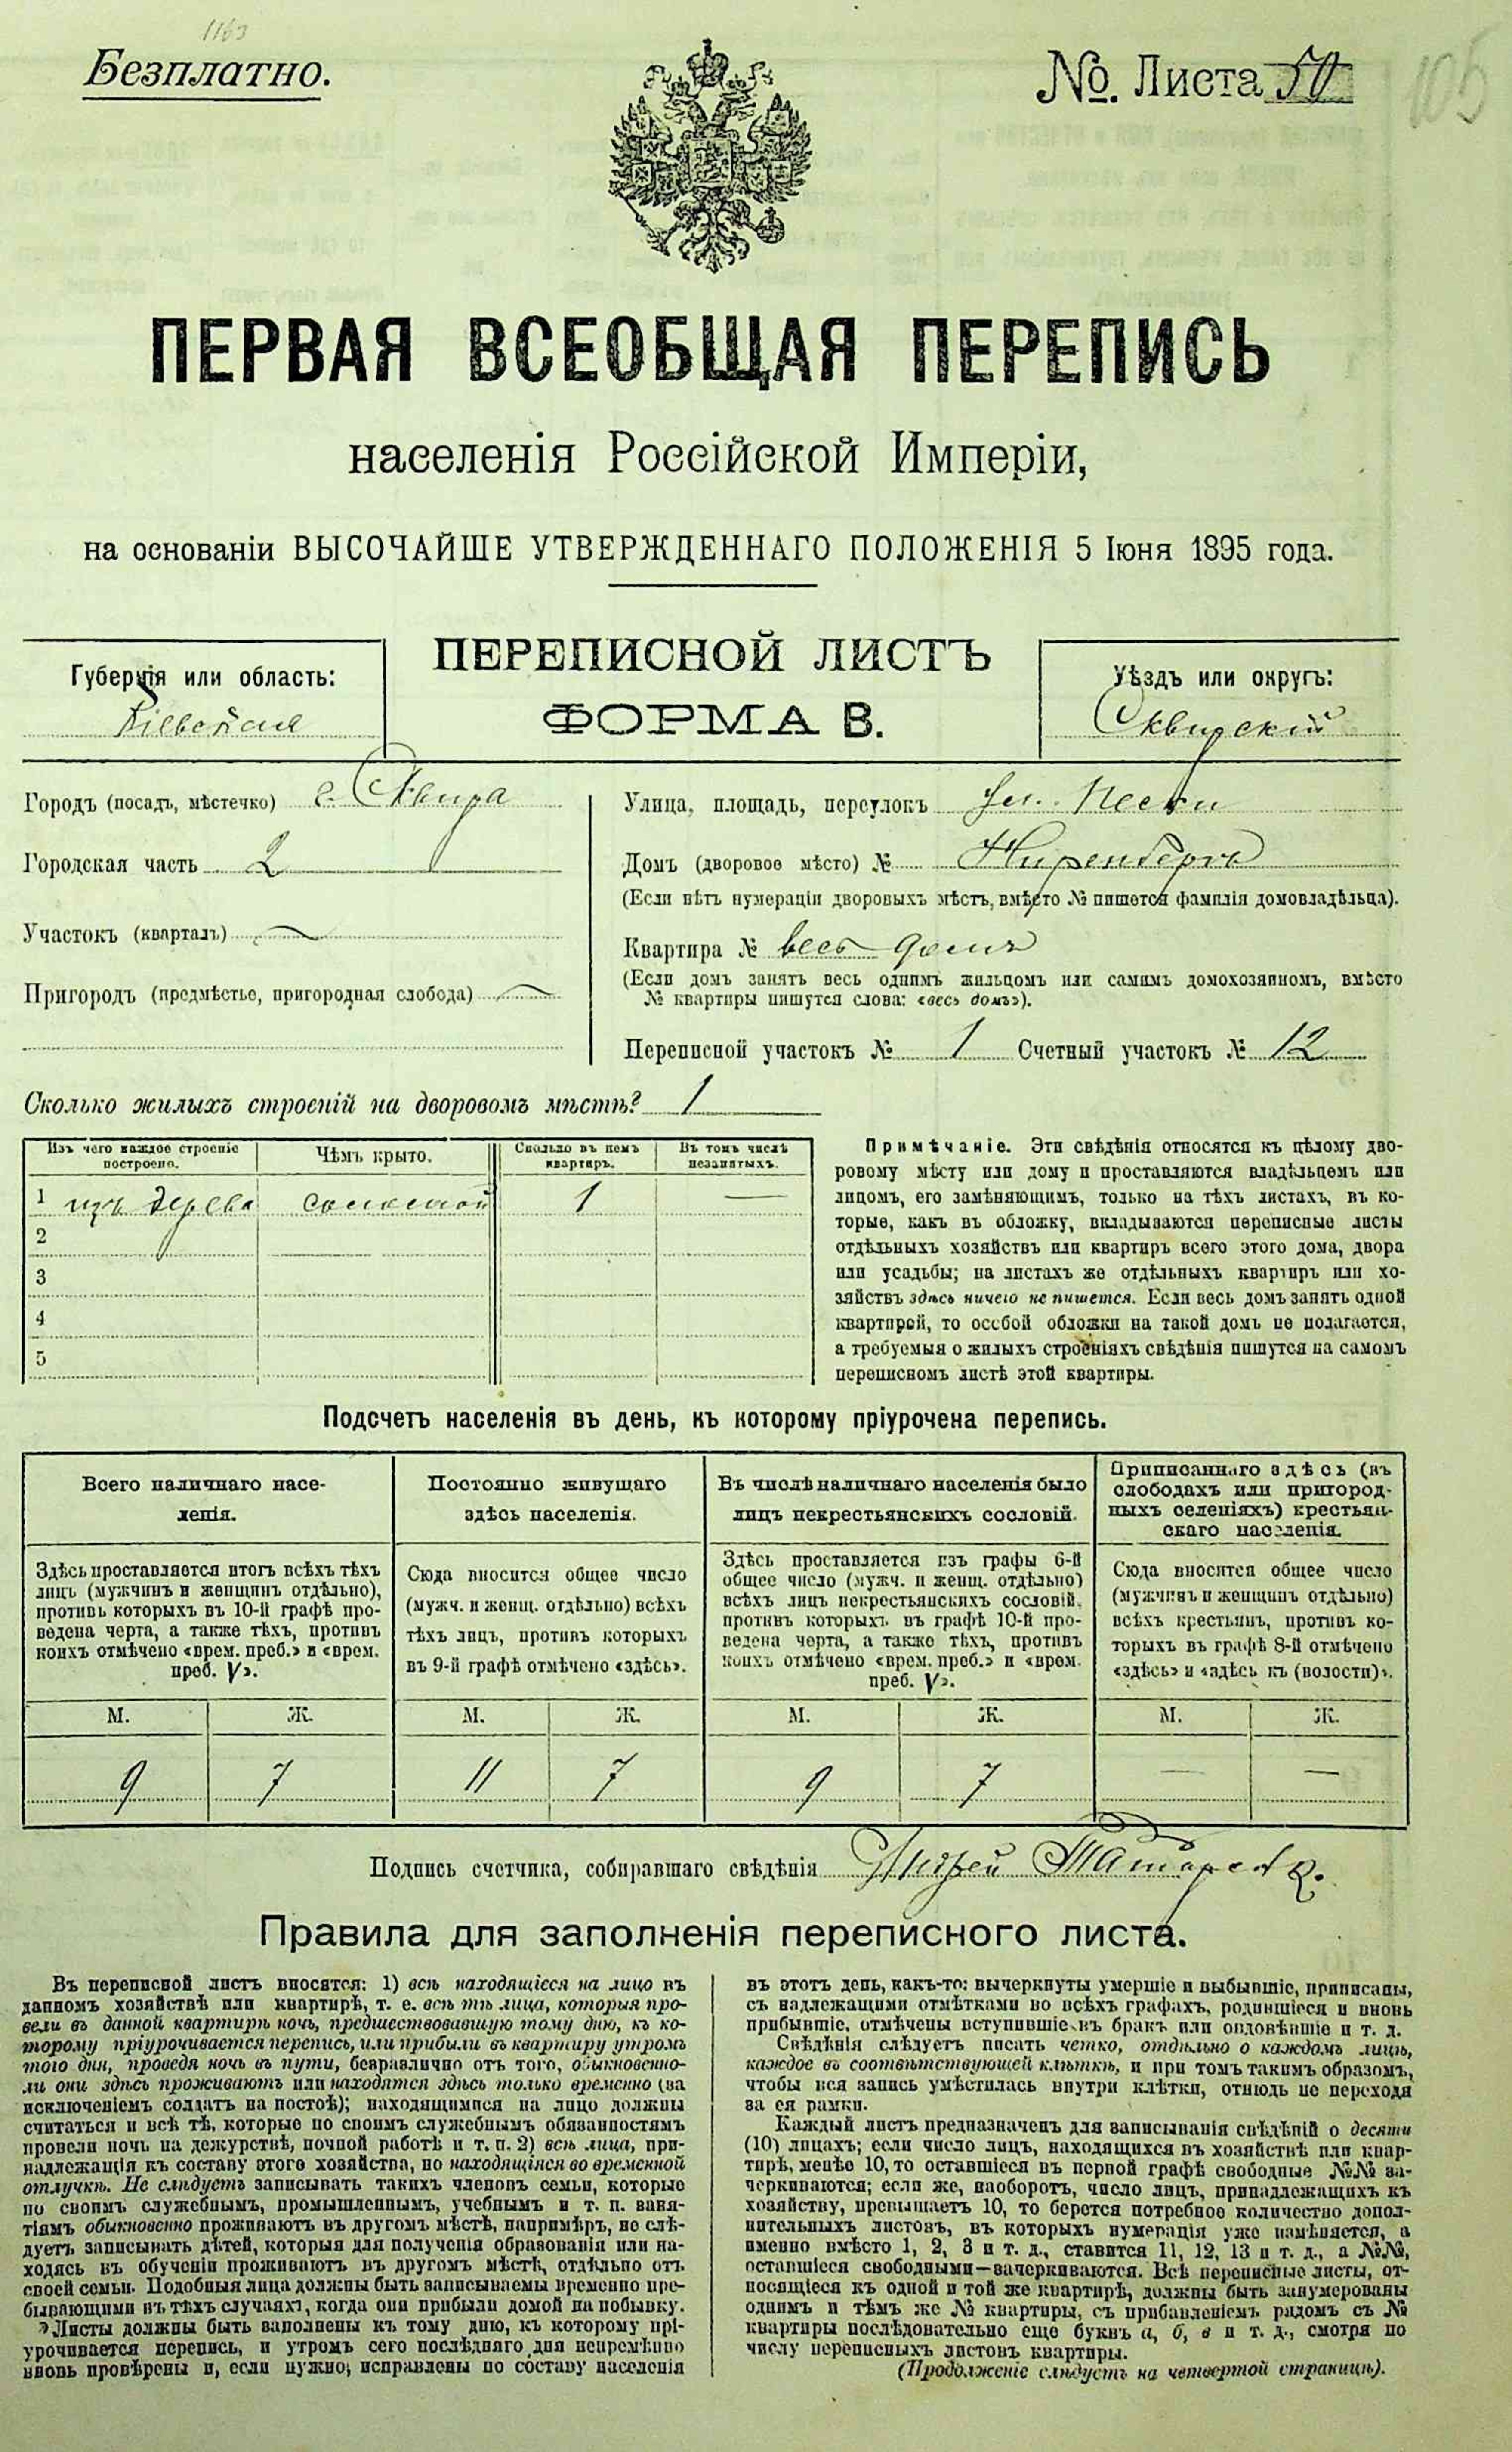 1163
Безплатно.
№. Листа 50
105
ПЕРВАЯ ВСЕОБЩАЯ ПЕРЕПИСЬ
населенія Россійской Имперіи,
на основаніи ВЫСОЧАЙШЕ УТВЕРЖДЕННАГО ПОЛОЖЕНІЯ 5 Іюня 1895 года.
Губернія или область:
Кіевская
ПЕРЕПИСНОЙ ЛИСТЪ
ФОРМА В.
Уѣздъ или округъ:
Сквирскій
Городъ (посадъ, мѣстечко) г. Сквира
Городская часть 2
Участокъ (кварталъ)
Пригородъ (предмѣстье, пригородная слобода)
Улица, площадь, переулокъ ул. Пески
Домъ (дворовое мѣсто) № Ниренберга
(Если нѣтъ нумераціи дворовыхъ мѣстъ, вмѣсто № пишется фамилія домовладѣльца).
Квартира № весь домъ
(Если домъ занятъ весь однимъ жильцомъ или самимъ домохозяиномъ, вмѣсто
№ квартиры пишутся слова: «весь домъ»).
Переписной участокъ № 1 Счетный участокъ № 12
Сколько жилыхъ строеній на дворовомъ мѣстѣ? 1
Изъ чего каждое строеніе построено.
Чѣмъ крыто.
Сколько въ немъ квартиръ.
Въ томъ числѣ незанятыхъ.
1 изъ дерева соломой 1 —
2
3
4
5
Примѣчаніе. Эти свѣдѣнія относятся къ цѣлому дво-
ровому мѣсту или дому и проставляются владѣльцемъ или
лицомъ, его замѣняющимъ, только на тѣхъ листахъ, въ ко-
торые, какъ въ обложку, вкладываются переписные листы
отдѣльныхъ хозяйствъ или квартиръ всего этого дома, двора
или усадьбы; на листахъ же отдѣльныхъ квартиръ или хо-
зяйствъ здѣсь ничего не пишется. Если весь домъ занятъ одной
квартирой, то особой обложки на такой домъ не полагается,
а требуемыя о жилыхъ строеніяхъ свѣдѣнія пишутся на самомъ
переписномъ листѣ этой квартиры.
Подсчетъ населенія въ день, къ которому пріурочена перепись.
Всего наличнаго насе-
ленія.
Здѣсь проставляется итогъ всѣхъ тѣхъ
лицъ (мужчинъ и женщинъ отдѣльно),
противъ которыхъ въ 10-й графѣ про-
ведена черта, а также тѣхъ, противъ
коихъ отмѣчено «врем. преб.» и «врем.
преб. V».
М. Ж.
9 7
Постоянно живущаго
здѣсь населенія.
Сюда вносится общее число
(мужч. и женщ. отдѣльно) всѣхъ
тѣхъ лицъ, противъ которыхъ
въ 9-й графѣ отмѣчено «здѣсь».
М. Ж.
11 7
Въ числѣ наличнаго населенія было
лицъ некрестьянскихъ сословій.
Здѣсь проставляется изъ графы 6-й
общее число (мужч. и женщ. отдѣльно)
всѣхъ лицъ некрестьянскихъ сословій,
противъ которыхъ въ графѣ 10-й про-
ведена черта, а также тѣхъ, противъ
коихъ отмѣчено «врем. преб.» и «врем.
преб. V».
М. Ж.
9 7
Приписаннаго здѣсь (въ
слободахъ или пригород-
ныхъ селеніяхъ) крестьян-
скаго населенія.
Сюда вносится общее число
(мужчинъ и женщинъ отдѣльно)
всѣхъ крестьянъ, противъ ко-
торыхъ въ графѣ 8-й отмѣчено
«здѣсь» и «здѣсь къ (волости)».
М. Ж.
— —
Подпись счетчика, собиравшаго свѣдѣнія Андрей
Правила для заполненія переписного листа.
Въ переписной листъ вносятся: 1) всѣ находящіеся на лицо въ
данномъ хозяйствѣ или квартирѣ, т. е. всѣ тѣ лица, которыя про-
вели въ данной квартирѣ ночь, предшествовавшую тому дню, къ ко-
торому пріурочивается перепись, или прибыли въ квартиру утромъ
того дня, проведя ночь въ пути, безразлично отъ того, обыкновенно-
ли они здѣсь проживаютъ или находятся здѣсь только временно (за
исключеніемъ солдатъ на постоѣ); находящимися на лицо должны
считаться и всѣ тѣ, которые по своимъ служебнымъ обязанностямъ
провели ночь на дежурствѣ, ночной работѣ и т. п. 2) всѣ лица, при-
надлежащія къ составу этого хозяйства, но находящіяся во временной
отлучкѣ. Не слѣдуетъ записывать такихъ членовъ семьи, которые
по своимъ служебнымъ, промышленнымъ, учебнымъ и т. п. заня-
тіямъ обыкновенно проживаютъ въ другомъ мѣстѣ, напримѣръ, не слѣ-
дуетъ записывать дѣтей, которыя для полученія образованія или на-
ходясь въ обученіи проживаютъ въ другомъ мѣстѣ, отдѣльно отъ
своей семьи. Подобныя лица должны быть записываемы временно пре-
бывающими въ тѣхъ случаяхъ, когда они прибыли домой на побывку.
Листы должны быть заполнены къ тому дню, къ которому прі-
урочивается перепись, и утромъ сего послѣдняго дня непремѣнно
вновь провѣрены и, если нужно, исправлены по составу населенія
въ этотъ день, какъ-то: вычеркнуты умершіе и выбывшіе, приписаны,
съ надлежащими отмѣтками во всѣхъ графахъ, родившіеся и вновь
прибывшіе, отмѣчены вступившіе въ бракъ или овдовѣвшіе и т. д.
Свѣдѣнія слѣдуетъ писать четко, отдѣльно о каждомъ лицѣ,
каждое въ соотвѣтствующей клѣткѣ, и при томъ такимъ образомъ,
чтобы вся запись умѣстилась внутри клѣтки, отнюдь не переходя
за ея рамки.
Каждый листъ предназначенъ для записыванія свѣдѣній о десяти
(10) лицахъ; если число лицъ, находящихся въ хозяйствѣ или квар-
тирѣ, менѣе 10, то оставшіеся въ первой графѣ свободные №№ за-
черкиваются; если же, наоборотъ, число лицъ, принадлежащихъ къ
хозяйству, превышаетъ 10, то берется потребное количество допол-
нительныхъ листовъ, въ которыхъ нумерація уже измѣняется, а
именно вмѣсто 1, 2, 3 и т. д., ставится 11, 12, 13 и т. д., а №№,
оставшіеся свободными—зачеркиваются. Всѣ переписные листы, от-
носящіеся къ одной и той же квартирѣ, должны быть занумерованы
однимъ и тѣмъ же № квартиры, съ прибавленіемъ рядомъ съ №
квартиры послѣдовательно еще буквъ а, б, в и т. д., смотря по
числу переписныхъ листовъ квартиры.
(Продолженіе слѣдуетъ на четвертой страницѣ).